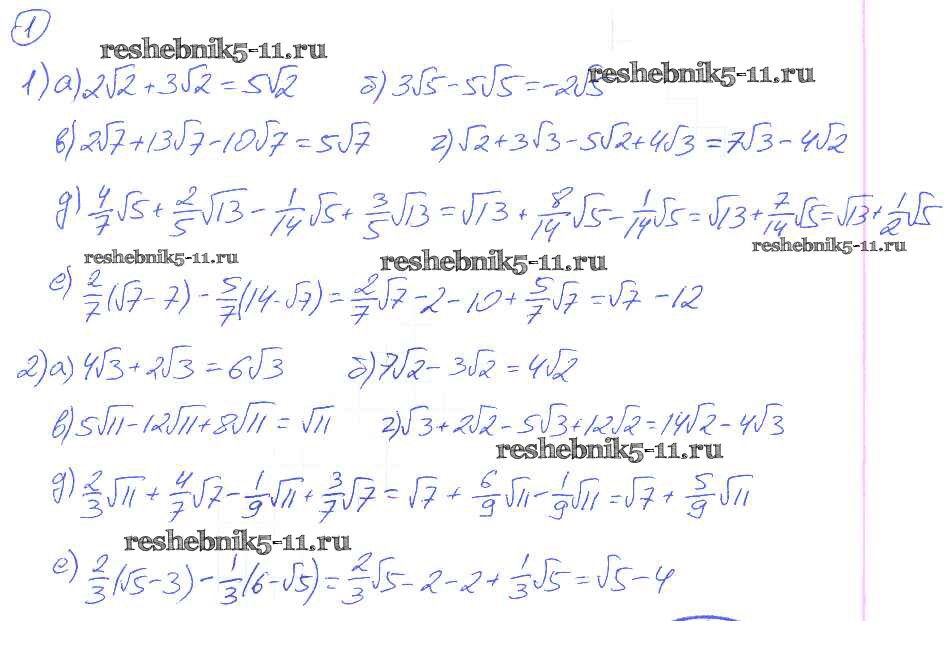 1
reshebnik5-11.ru
1) а) 2√2 + 3√2 = 5√2 б) 3√5 - 5√5 = -2√5
reshebnik5-11.ru
в) 2√7 + 13√7 - 10√7 = 5√7 г) √2 + 3√3 - 5√2 + 4√3 = 7√3 - 4√2
д) 4/7√5 + 2/5√13 - 1/14√5 + 3/5√13 = √13 + 8/14√5 - 1/14√5 = √13 + 7/14√5 = √13 + 1/2√5
reshebnik5-11.ru
reshebnik5-11.ru reshebnik5-11.ru
е) 2/7(√7 - 7) - 5/7(14 - √7) = 2/7√7 - 2 - 10 + 5/7√7 = √7 - 12
2) а) 4√3 + 2√3 = 6√3 б) 7√2 - 3√2 = 4√2
в) 5√11 - 12√11 + 8√11 = √11 г) √3 + 2√2 - 5√3 + 12√2 = 14√2 - 4√3
reshebnik5-11.ru
д) 2/3√11 + 4/7√7 - 1/9√11 + 3/7√7 = √7 + 6/9√11 - 1/9√11 = √7 + 5/9√11
reshebnik5-11.ru
е) 2/3(√5 - 3) - 1/3(6 - √5) = 2/3√5 - 2 - 2 + 1/3√5 = √5 - 4